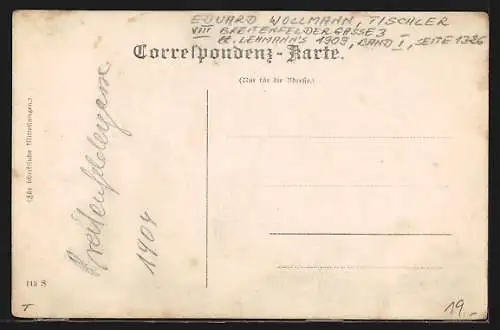 EDUARD WOLLMANN, TISCHLER
VIII BREITENFELDERGASSE 3
lt. LEHMANN'S 1909, BAND I, SEITE 1326
Correspondenz-Karte.
(Nur für die Adresse.)
(Für schriftliche Mitteilungen.)
Breitenfeldergasse
1904
112 S
19.-